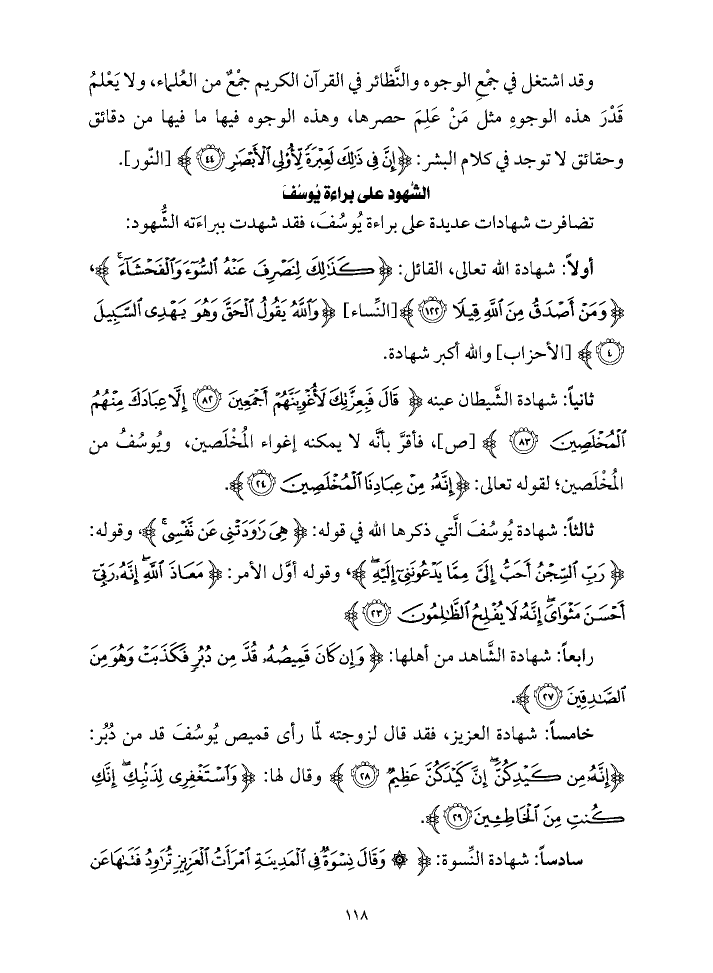 وقد اشتغل في جمْعِ الوجوه والنَّظائر في القرآن الكريم جمْعٌ من العُلماء، ولا يَعْلمُ
قَدْرَ هذه الوجوهِ مثل مَنْ عَلِمَ حصرها، وهذه الوجوه فيها ما فيها من دقائق
وحقائق لا توجد في كلام البشر: ﴿إِنَّ فِي ذَٰلِكَ لَعِبْرَةً لِّأُوْلِي ٱلْأَبْصَٰرِ ٤٤﴾ [النّور].
الشهود على براءة يُوسُفَ
تضافرت شهادات عديدة على براءة يُوسُفَ، فقد شهدت ببراءَته الشُّهود:
أولاً: شهادة الله تعالى، القائل: ﴿كَذَٰلِكَ لِنَصْرِفَ عَنْهُ ٱلسُّوٓءَ وَٱلْفَحْشَآءَ ۚ﴾،
﴿وَمَنْ أَصْدَقُ مِنَ ٱللَّهِ قِيلًا ١٢٢﴾ [النِّساء] ﴿وَٱللَّهُ يَقُولُ ٱلْحَقَّ وَهُوَ يَهْدِي ٱلسَّبِيلَ
٤﴾ [الأحزاب] والله أكبر شهادة.
ثانياً: شهادة الشَّيطان عينه ﴿قَالَ فَبِعِزَّتِكَ لَأُغْوِيَنَّهُمْ أَجْمَعِينَ ٨٢ إِلَّا عِبَادَكَ مِنْهُمُ
ٱلْمُخْلَصِينَ ٨٣﴾ [ص]، فأقرَّ بأنَّه لا يمكنه إغواء المُخْلَصين، ويُوسُفُ من
المُخْلَصين؛ لقوله تعالى: ﴿إِنَّهُۥ مِنْ عِبَادِنَا ٱلْمُخْلَصِينَ ٢٤﴾.
ثالثاً: شهادة يُوسُفَ الَّتي ذكرها الله في قوله: ﴿هِيَ رَٰوَدَتْنِي عَن نَّفْسِي ۚ﴾، وقوله:
﴿رَبِّ ٱلسِّجْنُ أَحَبُّ إِلَيَّ مِمَّا يَدْعُونَنِيٓ إِلَيْهِ ۖ﴾، وقوله أوَّل الأمر: ﴿مَعَاذَ ٱللَّهِ ۖ إِنَّهُۥ رَبِّيٓ
أَحْسَنَ مَثْوَايَ ۖ إِنَّهُۥ لَا يُفْلِحُ ٱلظَّٰلِمُونَ ٢٣﴾
رابعاً: شهادة الشَّاهد من أهلها: ﴿وَإِن كَانَ قَمِيصُهُۥ قُدَّ مِن دُبُرٍ فَكَذَبَتْ وَهُوَ مِنَ
ٱلصَّٰدِقِينَ ٢٧﴾.
خامساً: شهادة العزيز، فقد قال لزوجته لمّا رأى قميص يُوسُفَ قد من دُبُر:
﴿إِنَّهُۥ مِن كَيْدِكُنَّ ۖ إِنَّ كَيْدَكُنَّ عَظِيمٌ ٢٨﴾ وقال لها: ﴿وَٱسْتَغْفِرِي لِذَنۢبِكِ ۖ إِنَّكِ
كُنتِ مِنَ ٱلْخَاطِـِٔينَ ٢٩﴾.
سادساً: شهادة النِّسوة: ﴿۞ وَقَالَ نِسْوَةٌ فِي ٱلْمَدِينَةِ ٱمْرَأَتُ ٱلْعَزِيزِ تُرَٰوِدُ فَتَىٰهَا عَن
١١٨